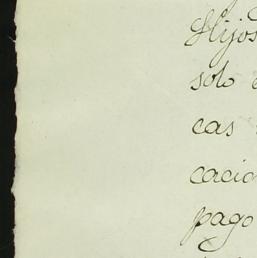 Hijos
solo
cas
cacio
pago